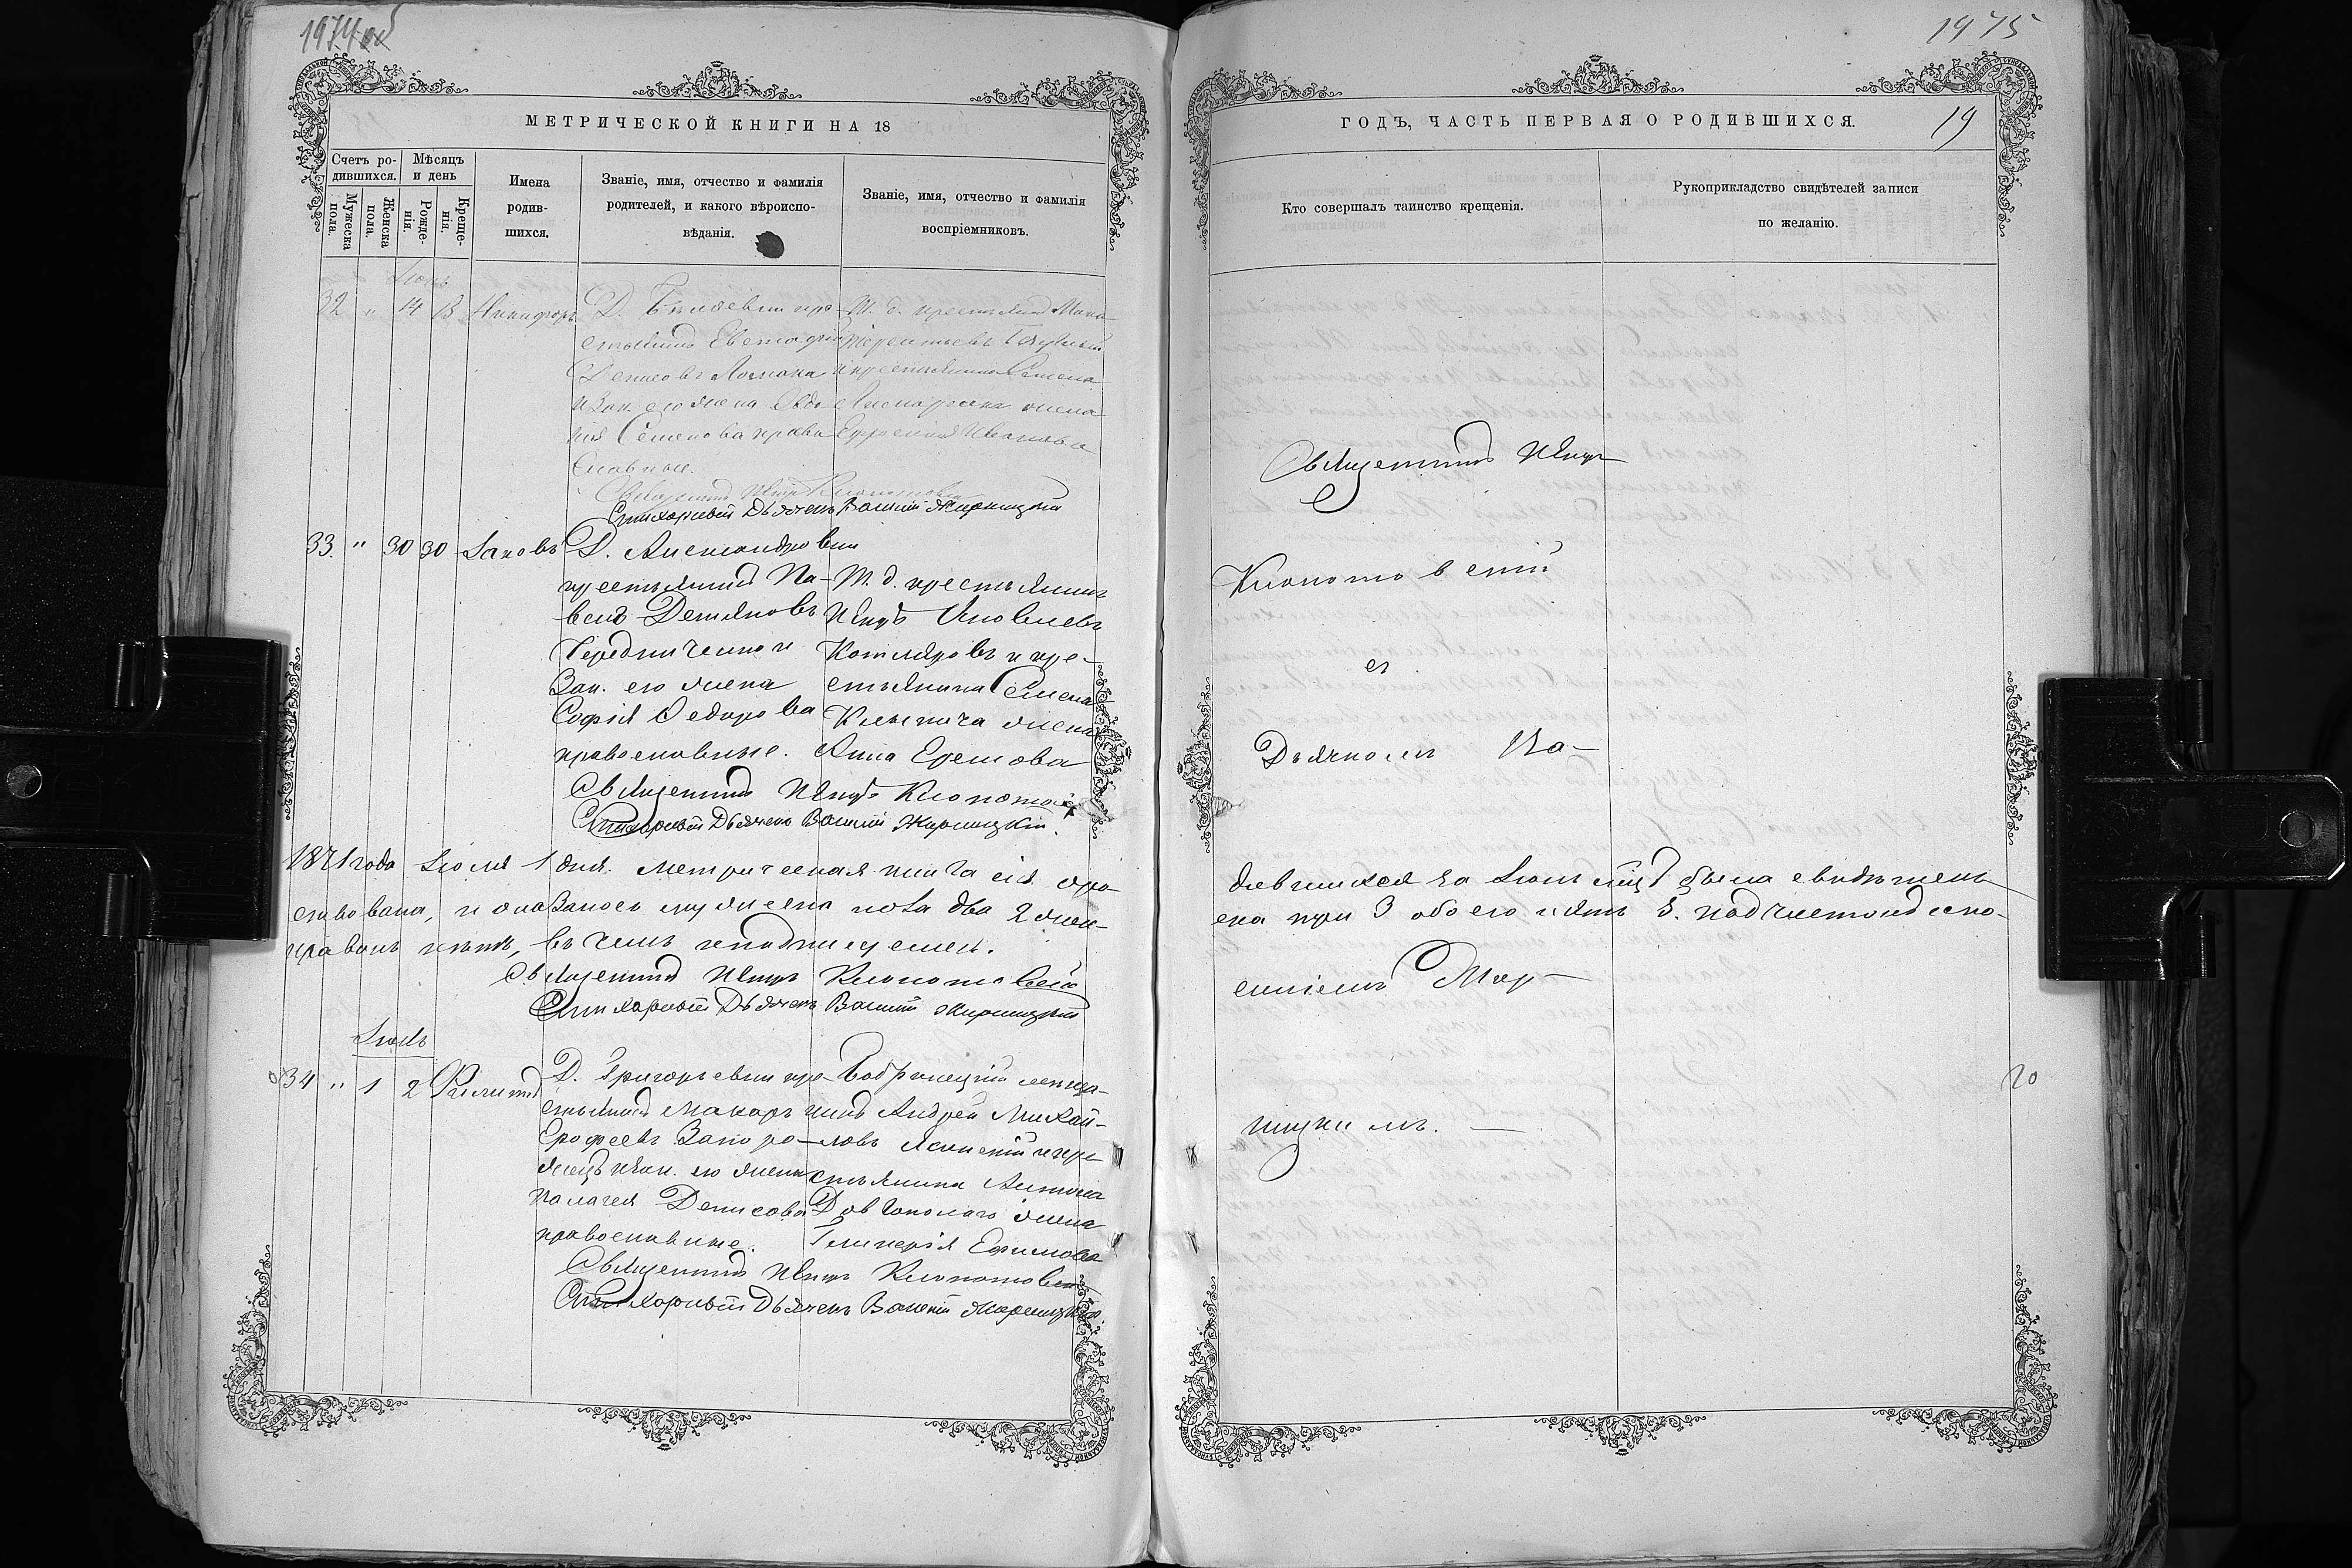 1974 об
МЕТРИЧЕСКОЙ КНИГИ НА 18
Счетъ ро-
дившихся.
Мѣсяцъ
и день
Мужеска
пола.
Женска
пола.
Рожде-
нія.
Креще-
нія.
Имена
родив-
шихся.
Званіе, имя, отчество и фамилія
родителей, и какого вѣроиспо-
вѣданія.
Званіе, имя, отчество и фамилія
воспріемниковъ.
Іюнь
32 " 14 Никифоръ
Д. кре-
стьянинъ Евстафій
Денисовъ
и зак. его жена Евдо-
кія Семенова право-
славные.
Т. д. крестьянинъ
Терентьевъ
и крестьянина Семена
жена
Ефросинія Иванова
Священникъ Петръ Клопотовскій
Стихарный Дьячекъ Василій Жирницкій
33. " 30 30 Іаковъ
Д. Александровки
крестьянинъ Па-
велъ Демяновъ
Чередниченко и
Зак. его жена
Софія Федорова
православные.
Т. д. крестьянинъ
Петръ Яковлевъ
Котляровъ и кре-
стьянина Семена
жена
Анна Еремова
Священникъ Петръ Клопотов
Стихарный Дьячекъ Василій Жирницкій.
1871 года Іюля 1 дня. Метрическая книга сія о ро-
ствована, и оказалось мужеска пола два 2 жен-
правонъ нѣтъ, въ чемъ и подписуемся.
Священникъ Петръ Клопотовскій
Стихарный Дьячекъ Василій Жирницкій
Іюль
34 " 1 2 Филиппъ
Д. Григорьевки кре-
стьянинъ Макаръ
Ерофеевъ Запоро-
жецъ и зак. его жена
Палагея Денисова
православные.
Бобринецкій меща-
нинъ Андрей Михай-
ловъ Ясинскій и кре-
стьянина Антона
Довгополаго жена
Гликерія Ефимова
Священникъ Петръ Клопотовскій
Стихарный Дьячекъ Василій Жирницкій.
1975
ГОДЪ, ЧАСТЬ ПЕРВАЯ О РОДИВШИХСЯ.
19
Кто совершалъ таинство крещенія.
Рукоприкладство свидѣтелей записи
по желанію.
Священникъ Петръ
Клопотовскій
съ
Дьячкомъ Ва-
дившихся за Іюнь мцъ была свидѣтель-
ска три 3 обоего пять 5. подчистокъ и по-
силіемъ Жир-
20
ницкимъ.